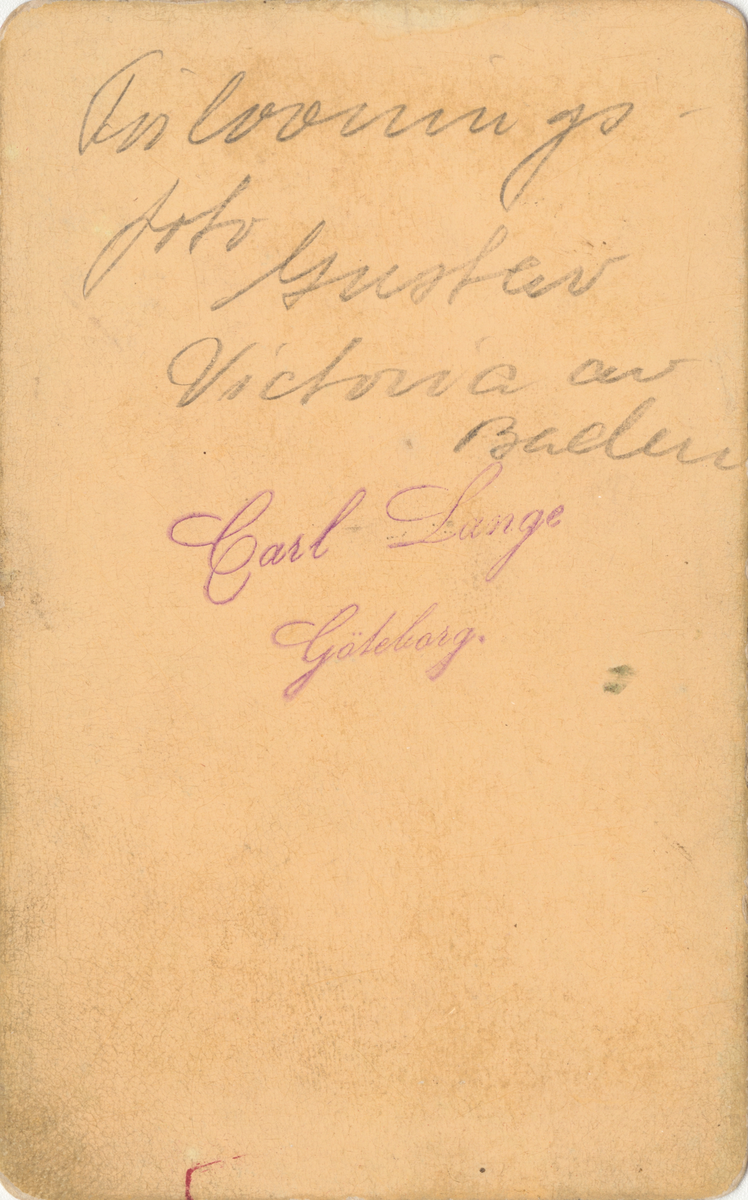 Förlovnings-
foto
Gustav
Victoria av
Baden
Carl Lange
Göteborg.